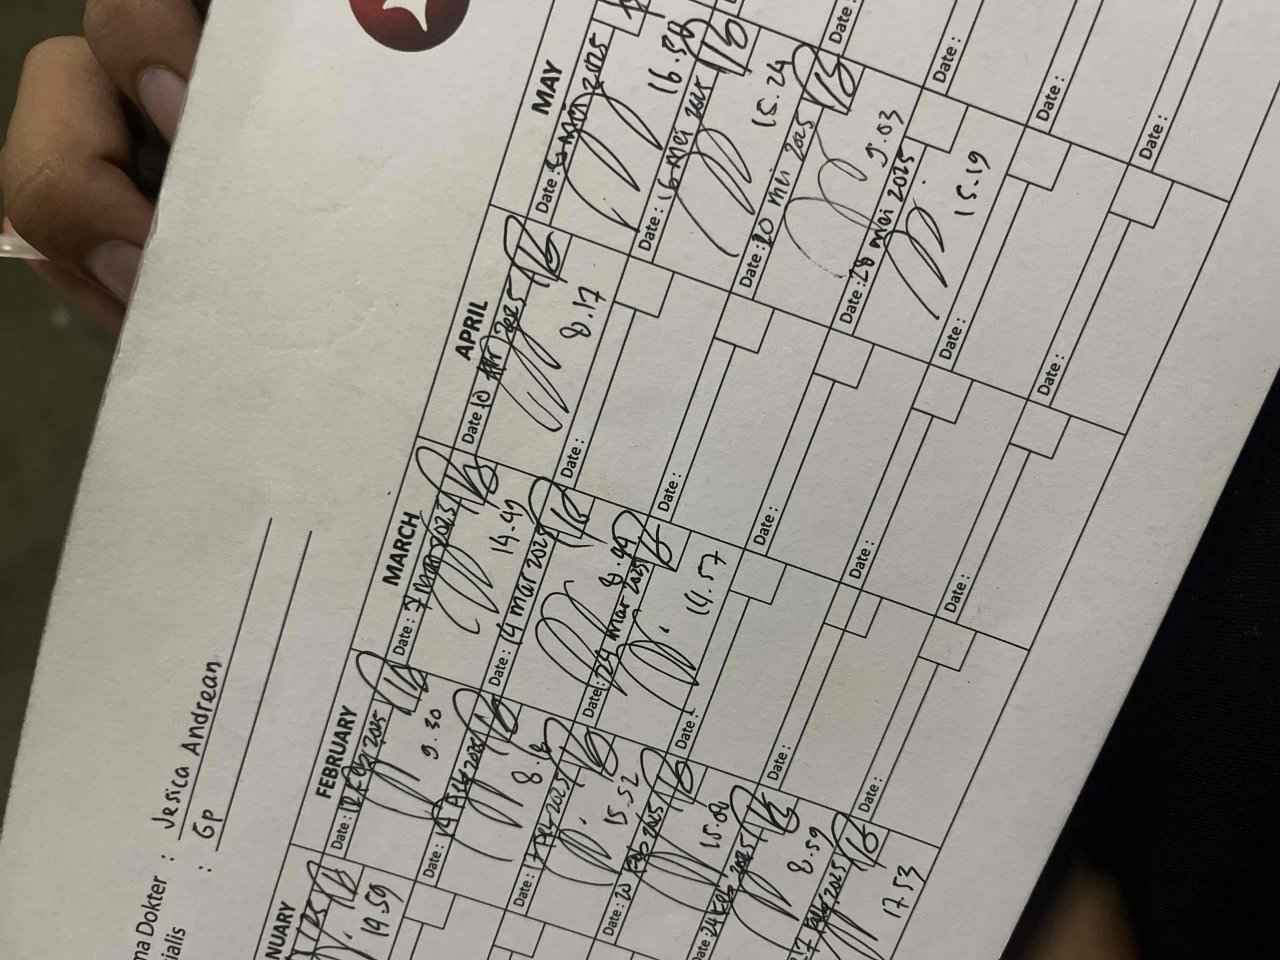 ma Dokter : Jesica Andrean
ialis : GP
NUARY
19.59
FEBRUARY
Date :
9.30
Date : 14 Feb 2025
8.
Date :
15.52
Date : 20 Feb 2025
15.00
Date : 24 Feb 2025
8.59
17.53
MARCH
Date : 7 Mar 2025
14.49
Date : 14 Mar 2025
8.49
Date : 24 Mar 2025
14.57
Date :
Date :
Date :
APRIL
Date : 10 Apr 2025
8.17
Date :
Date :
Date :
Date :
Date :
MAY
Date : 5 Mei 2025
16.36
Date : 16 Mei 2025
15.24
Date : 20 Mei 2025
9.03
Date : 28 Mei 2025
15.19
Date :
Date :
Date :
Date :
Date :
Date :